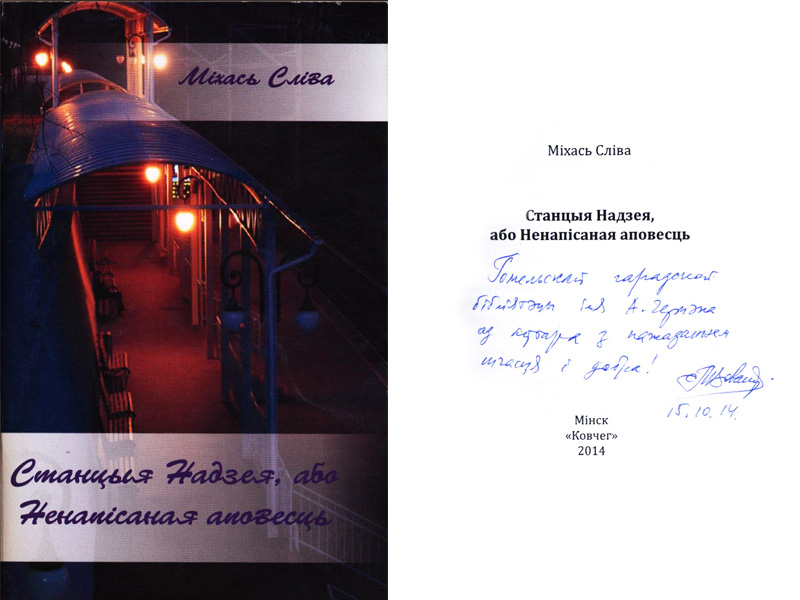 Міхась Сліва
Станцыя Надзея, або
Ненапісаная аповесць
Міхась Сліва
Станцыя Надзея,
або Ненапісаная аповесць
Гомельскай гарадской
бібліятэцы імя А. Герцэна
ад аўтара з пажаданнем
шчасця і добра!
15.10.14.
Мінск
«Ковчег»
2014